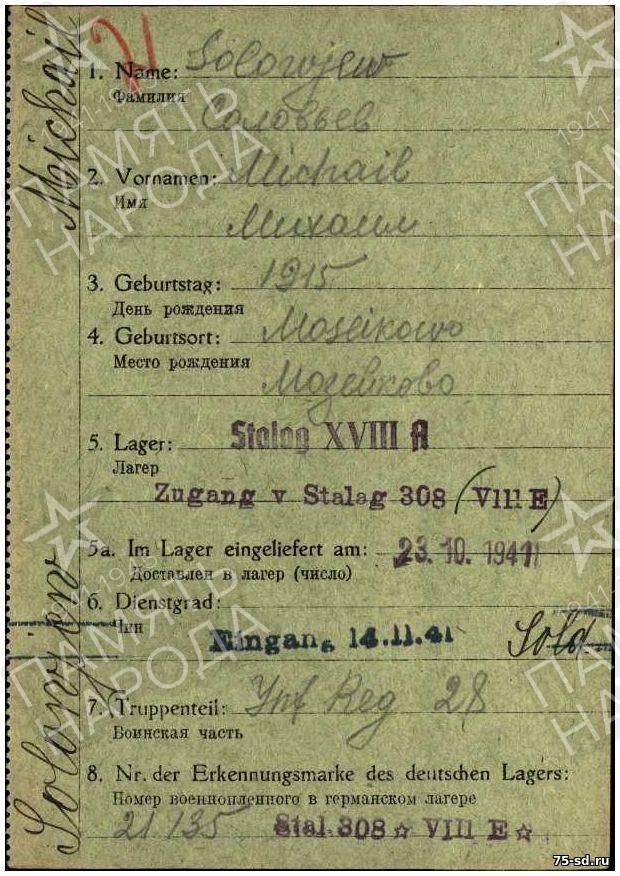 21
1. Name: Solowjew
Фамилия
Соловьев
2. Vornamen: Michail
Имя
Михаил
3. Geburtstag: 1915
День рождения
4. Geburtsort: Moseikowo
Место рождения
Мозейково
5. Lager: Stalag XVIII A
Лагер
Zugang v Stalag 308 (VIII E)
5a. Im Lager eingeliefert am: 23. 10. 1941
Доставлен в лагер (число)
6. Dienstgrad:
Чин
Eingang 14.11.41 Sold
7. Truppenteil: Inf Reg 28
Воинская часть
8. Nr. der Erkennungsmarke des deutschen Lagers:
Номер военнопленного в германском лагере
21 135 Stal 308 ☆ VIII E ☆
Solowjew Michail
ПАМЯТЬ
НАРОДА
75-sd.ru